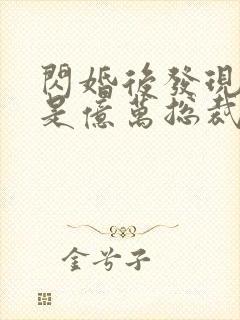 閃婚後發現
是億萬總裁
金兮子